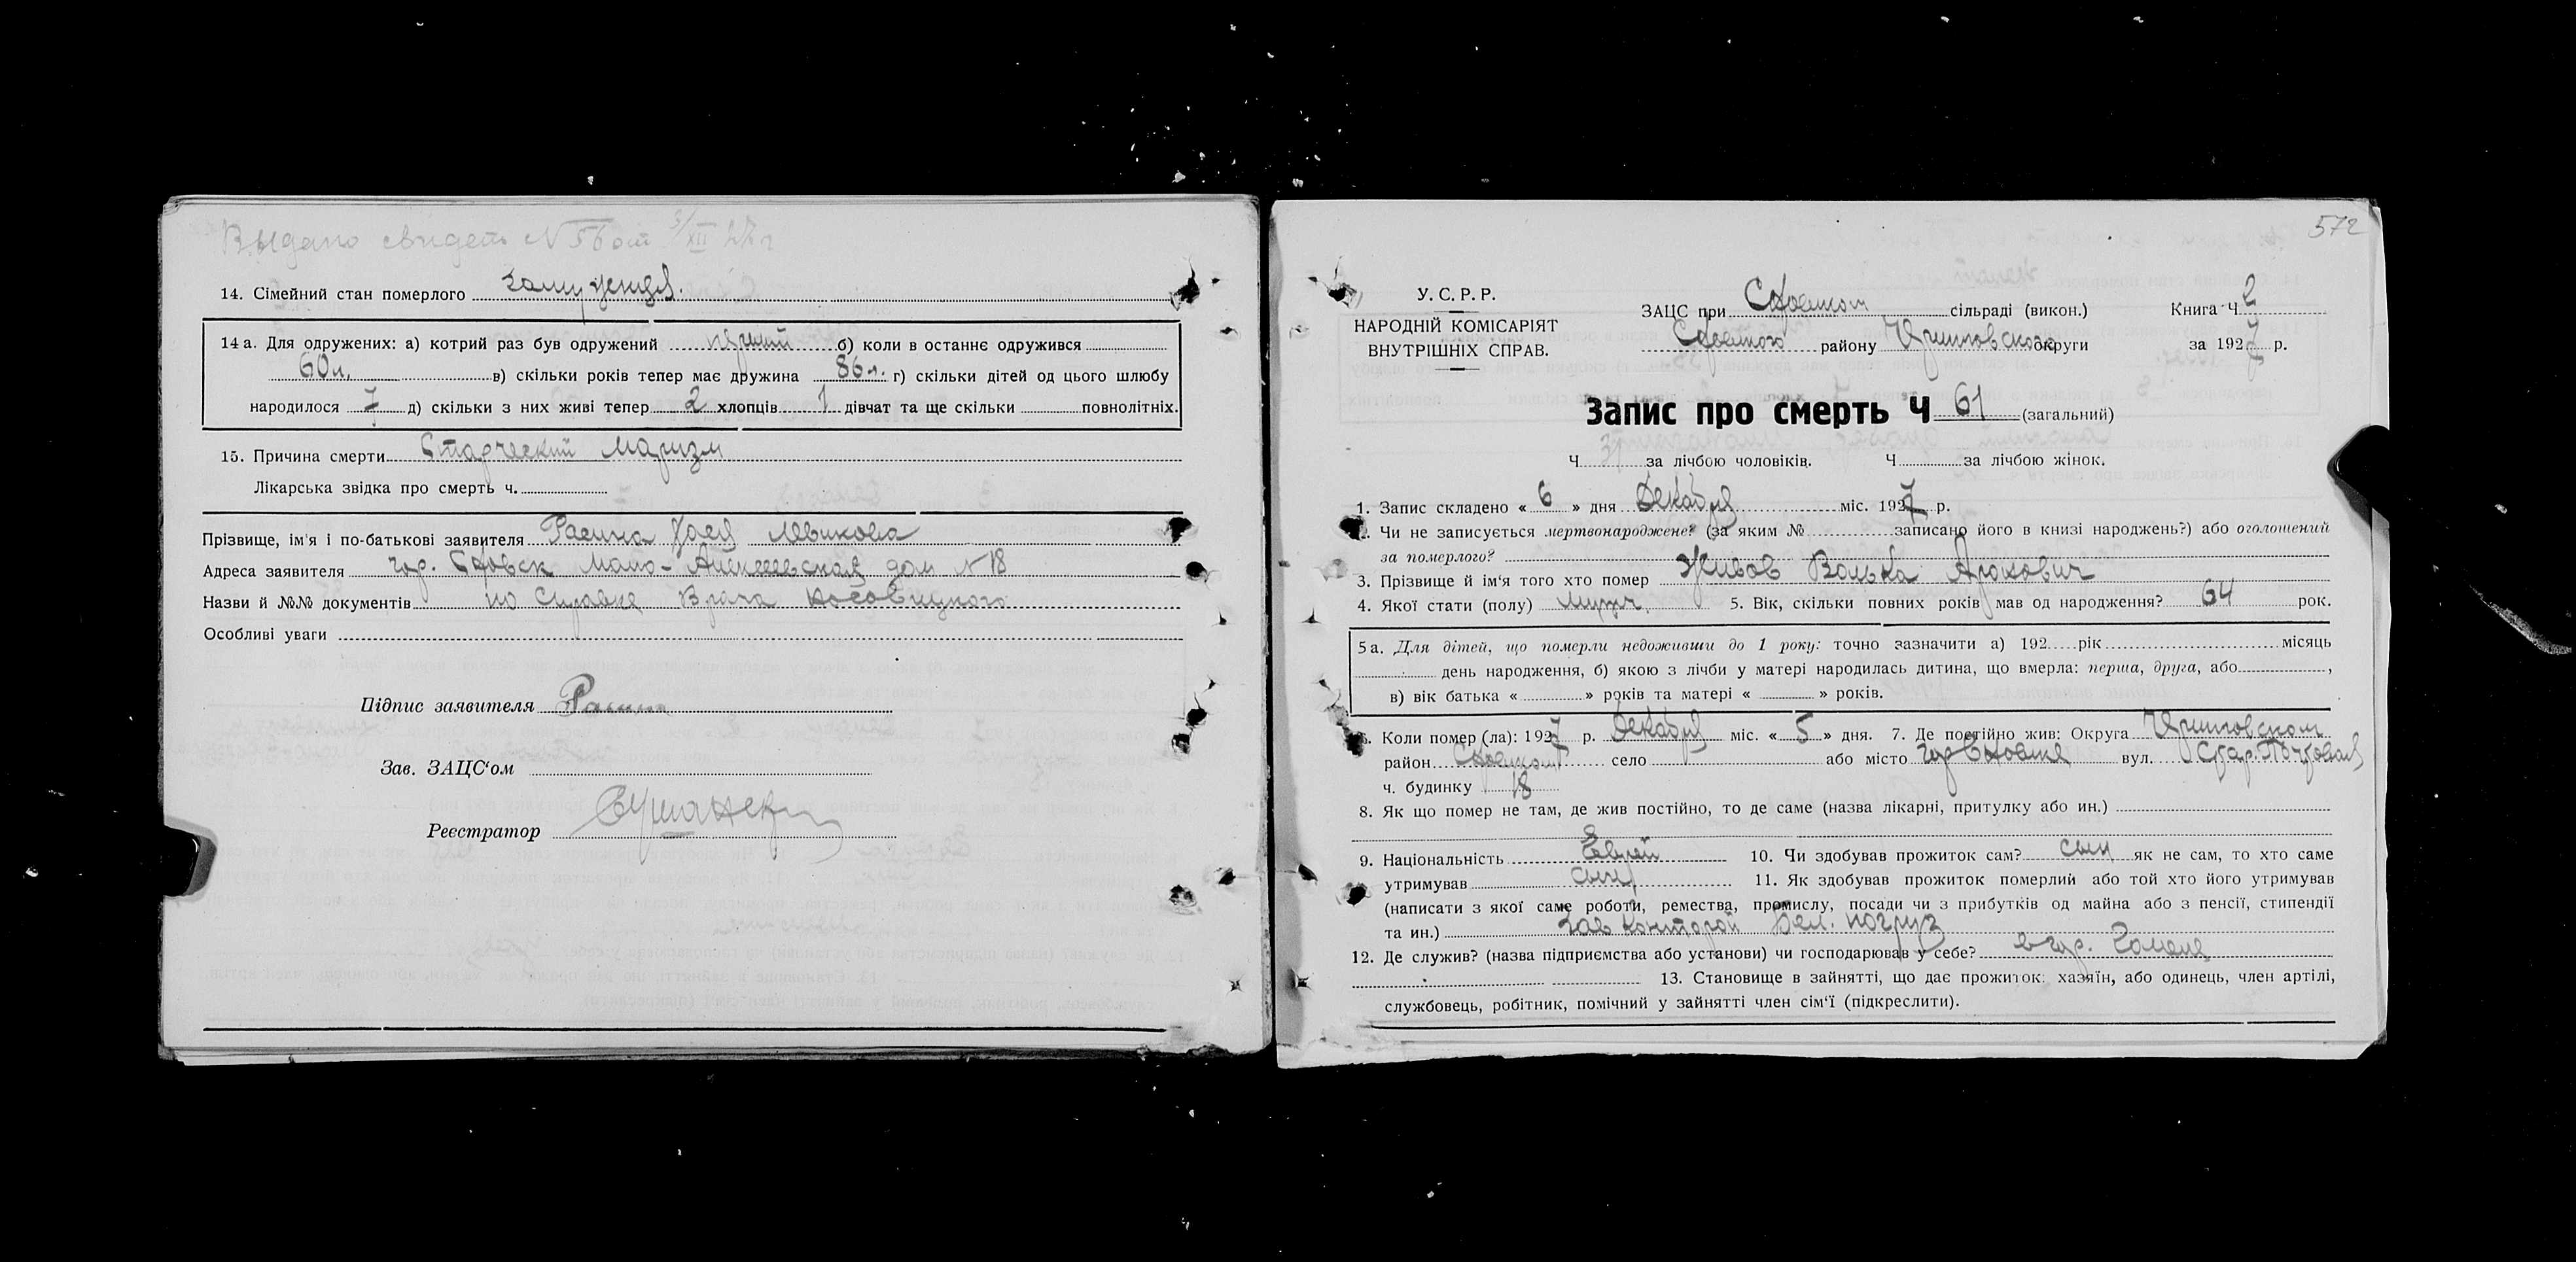 Выдано свидет № 56 от 3/XII 27 г
14. Сімейний стан померлого замужняя.
14 а. Для одружених: а) котрий раз був одружений первый б) коли в останнє одружився
60 л. в) скільки років тепер має дружина 86 л. г) скільки дітей од цього шлюбу
народилося 7 д) скільки з них живі тепер 2 хлопців 1 дівчат та ще скільки повнолітніх.
15. Причина смерти Старческий Маразм
Лікарська звідка про смерть ч.
Прізвище, ім'я і по-батькові заявителя Расина Хася
Адреса заявителя гор. Сновск Мало- дом № 18
Назви й №№ документів по справке Врача Косовицкого
Особливі уваги
Підпис заявителя Расина
Зав. ЗАЦС'ом
Реєстратор
572
У. С. Р. Р.
НАРОДНІЙ КОМІСАРІЯТ
ВНУТРІШНІХ СПРАВ.
ЗАЦС при Сновском сільраді (викон.) Книга Ч 2
Сновского району округи за 1927 р.
Запис про смерть Ч 61 (загальний)
Ч 31 за лічбою чоловіків. Ч за лічбою жінок.
1. Запис складено « 6 » дня Декабря міс. 1927 р.
2. Чи не записується мертвонароджене? (за яким № записано його в книзі народжень?) або оголошений
за померлого?
3. Прізвище й ім'я того хто помер Живов Волька Аронович
4. Якої стати (полу) мужч. 5. Вік, скільки повних років мав од народження? 64 рок.
5 а. Для дітей, що померли недоживши до 1 року: точно зазначити а) 192 рік місяць
день народження, б) якою з лічби у матері народилась дитина, що вмерла: перша, друга, або ,
в) вік батька « » років та матері « » років.
6. Коли помер (ла): 1927 р. Декабря міс. « 5 » дня. 7. Де постійно жив: Округа
район Сновском село або місто гор Сновске вул. Стар. Почтовая
ч. будинку 18
8. Як що помер не там, де жив постійно, то де саме (назва лікарні, притулку або ин.)
9. Національність Еврей 10. Чи здобував прожиток сам? сын як не сам, то хто саме
утримував сын 11. Як здобував прожиток померлий або той хто його утримував
(написати з якої саме роботи, ремества, промислу, посади чи з прибутків од майна або з пенсії, стипендії
та ин.) Зав Конторой Бел. погруз
12. Де служив? (назва підприємства або установи) чи господарював у себе? в гор. Гомеле
13. Становище в зайнятті, що дає прожиток: хазяїн, або одинець, член артілі,
службовець, робітник, помічний у зайнятті член сім'ї (підкреслити).